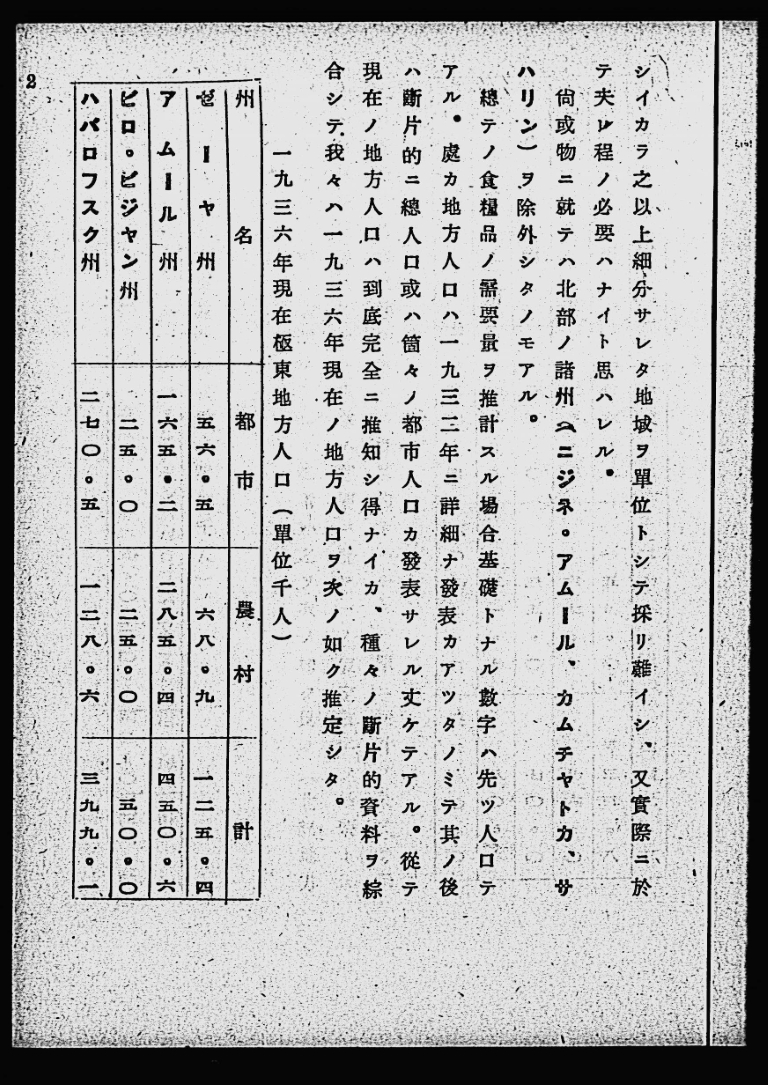 シイカラ之以上細分サレタ地域ヲ單位トシテ採リ難イシ、又實際ニ於
テ夫レ程ノ必要ハナイト思ハレル。
尙或物ニ就テハ北部ノ諸州(ニジネ。アムール、カムチヤトカ、サ
ハリン)ヲ除外シタノモアル。
總テノ食糧品ノ需要量ヲ推計スル場合基礎トナル數字ハ先ツ人口テ
アル。處カ地方人口ハ一九三二年ニ詳細ナ發表カアツタノミテ其ノ後
ハ斷片的ニ總人口或ハ箇々ノ都市人口カ發表サレル丈ケテアル。從テ
現在ノ地方人口ハ到底完全ニ推知シ得ナイカ、種々ノ斷片的資料ヲ綜
合シテ我々ハ一九三六年現在ノ地方人口ヲ次ノ如ク推定シタ。
一九三六年現在極東地方人口(單位千人)
州名 都市 農村 計
ゼーヤ州 五六。五 六八。九 一二五。四
アムール州 一六五。二 二八五。四 四五〇。六
ビロ。ビジヤン州 二五。〇 二五。〇 五〇。〇
ハバロフスク州 二七〇。五 一二八。六 三九九。一
2